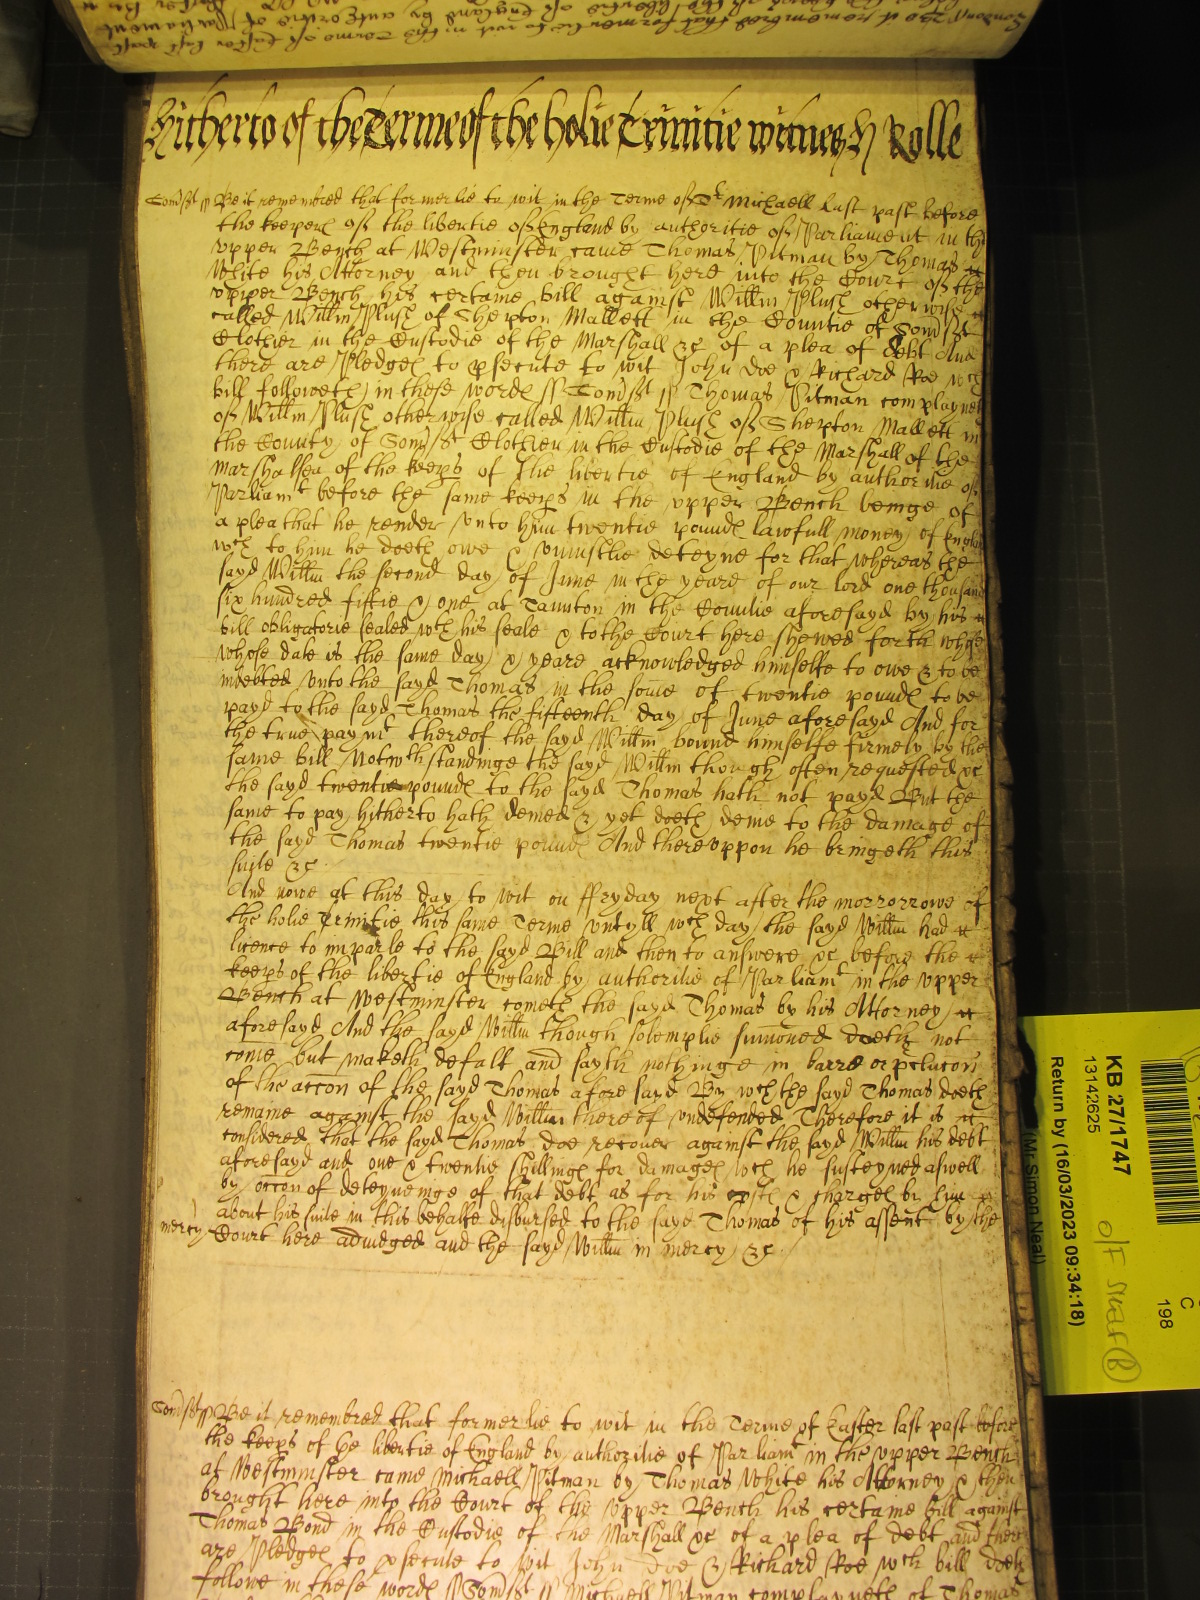 Hitherto of the Terme of the holie Trinitie witnesseth Rolle
Somsst ss Be it remembred that formerlie to wit in the Terme of St Michaell last past before
the keepers of the libertie of England by authoritie of Parliament in the
vpper Bench at Westminster came Thomas Pitman by Thomas
White his Attorney and then brought here into the Court of the
vpper Bench his certame bill against Willm Plush otherwise
called Willm Plush of Shepton Mallett in the Countie of Somsst
Clothier in the Custodie of the Marshall &c of a plea of debt And
there are Pledges to psecute to wit John Doe & Richard Roe wch
bill followeth in these words ss Somsst ss Thomas Pitman complayneth
of Willm Plush otherwise called Willm Plush of Shepton Mallett in
the County of Somsst Clothier in the Custodie of the Marshall of the
Marshalsea of the keeps of the libertie of England by authoritie of
Parliamt before the same keeps in the vpper Bench beinge of
a plea that he render vnto him twentie pounds lawfull money of England
wch to him he doeth owe & vniustlie deteyne for that whereas the
sayd Willm the second day of June in the yeare of our lord one thousand
six hundred fiftie & one at Taunton in the Countie aforesayd by his
bill obligatorie sealed wth his seale & to the Court here shewed forth whose
whose date is the same day & yeare acknowledged himselfe to owe & to be
indebted vnto the sayd Thomas in the some of twentie pounds to be
payd to the sayd Thomas the fifteenth day of June aforesayd And for
the true paymt thereof the sayd Willm bound himselfe firmely by the
same bill Notwthstandinge the sayd Willm though often requested &c
the sayd twentie pounds to the sayd Thomas hath not payd But the
same to pay hitherto hath denied & yet doeth denie to the damage of
the sayd Thomas twentie pounds And therevppon he bringeth this
suite &c
And nowe at this day to wit on ffryday next after the morrorrowe of
the holie Trinitie this same Terme vntyll wch day the sayd Willm had
licence to imparle to the sayd Bill and then to answere &c before the
keeps of the libertie of England by authoritie of Parliamt in the vpper
Bench at Westminster cometh the sayd Thomas by his Attorney
aforesayd And the sayd Willm though solemplie sumoned doeth not
come but maketh defalt and sayth nothinge in barre or pclucon
of the accon of the sayd Thomas aforesayd By wch the sayd Thomas doeth
remaine against the sayd Willm thereof vndefended Therefore it is
considered that the sayd Thomas doe recover against the sayd Willm his debt
aforesayd and one & twentie shillings for damages wch he susteyned aswell
by occon of deteyneinge of that debt as for his costs & charges by him
about his suite in this behalfe disbursed to the sayd Thomas of his assent by the
mercy Court here adiudged and the sayd Willm in mercy &c
Somsst ss Be it remembred that formerlie to wit in the Terme of Easter last past before
the keeps of the libertie of England by authoritie of Parliamt in the vpper Bench
at Westminster came Michaell Pitman by Thomas White his Attorney & then
brought here into the Court of the vpper Bench his certame bill against
Thomas Bond in the Custodie of the Marshall &c of a plea of debt and there
are Pledges to psecute to wit John Doe & Richard Roe wch bill doeth
followe in these words ss Somsst ss Michaell Pitman complayneth of Thomas
KB 27/1747
13142625
Return by (16/03/2023 09:34:18)
(Mr Simon Neal)
O/F
C
198